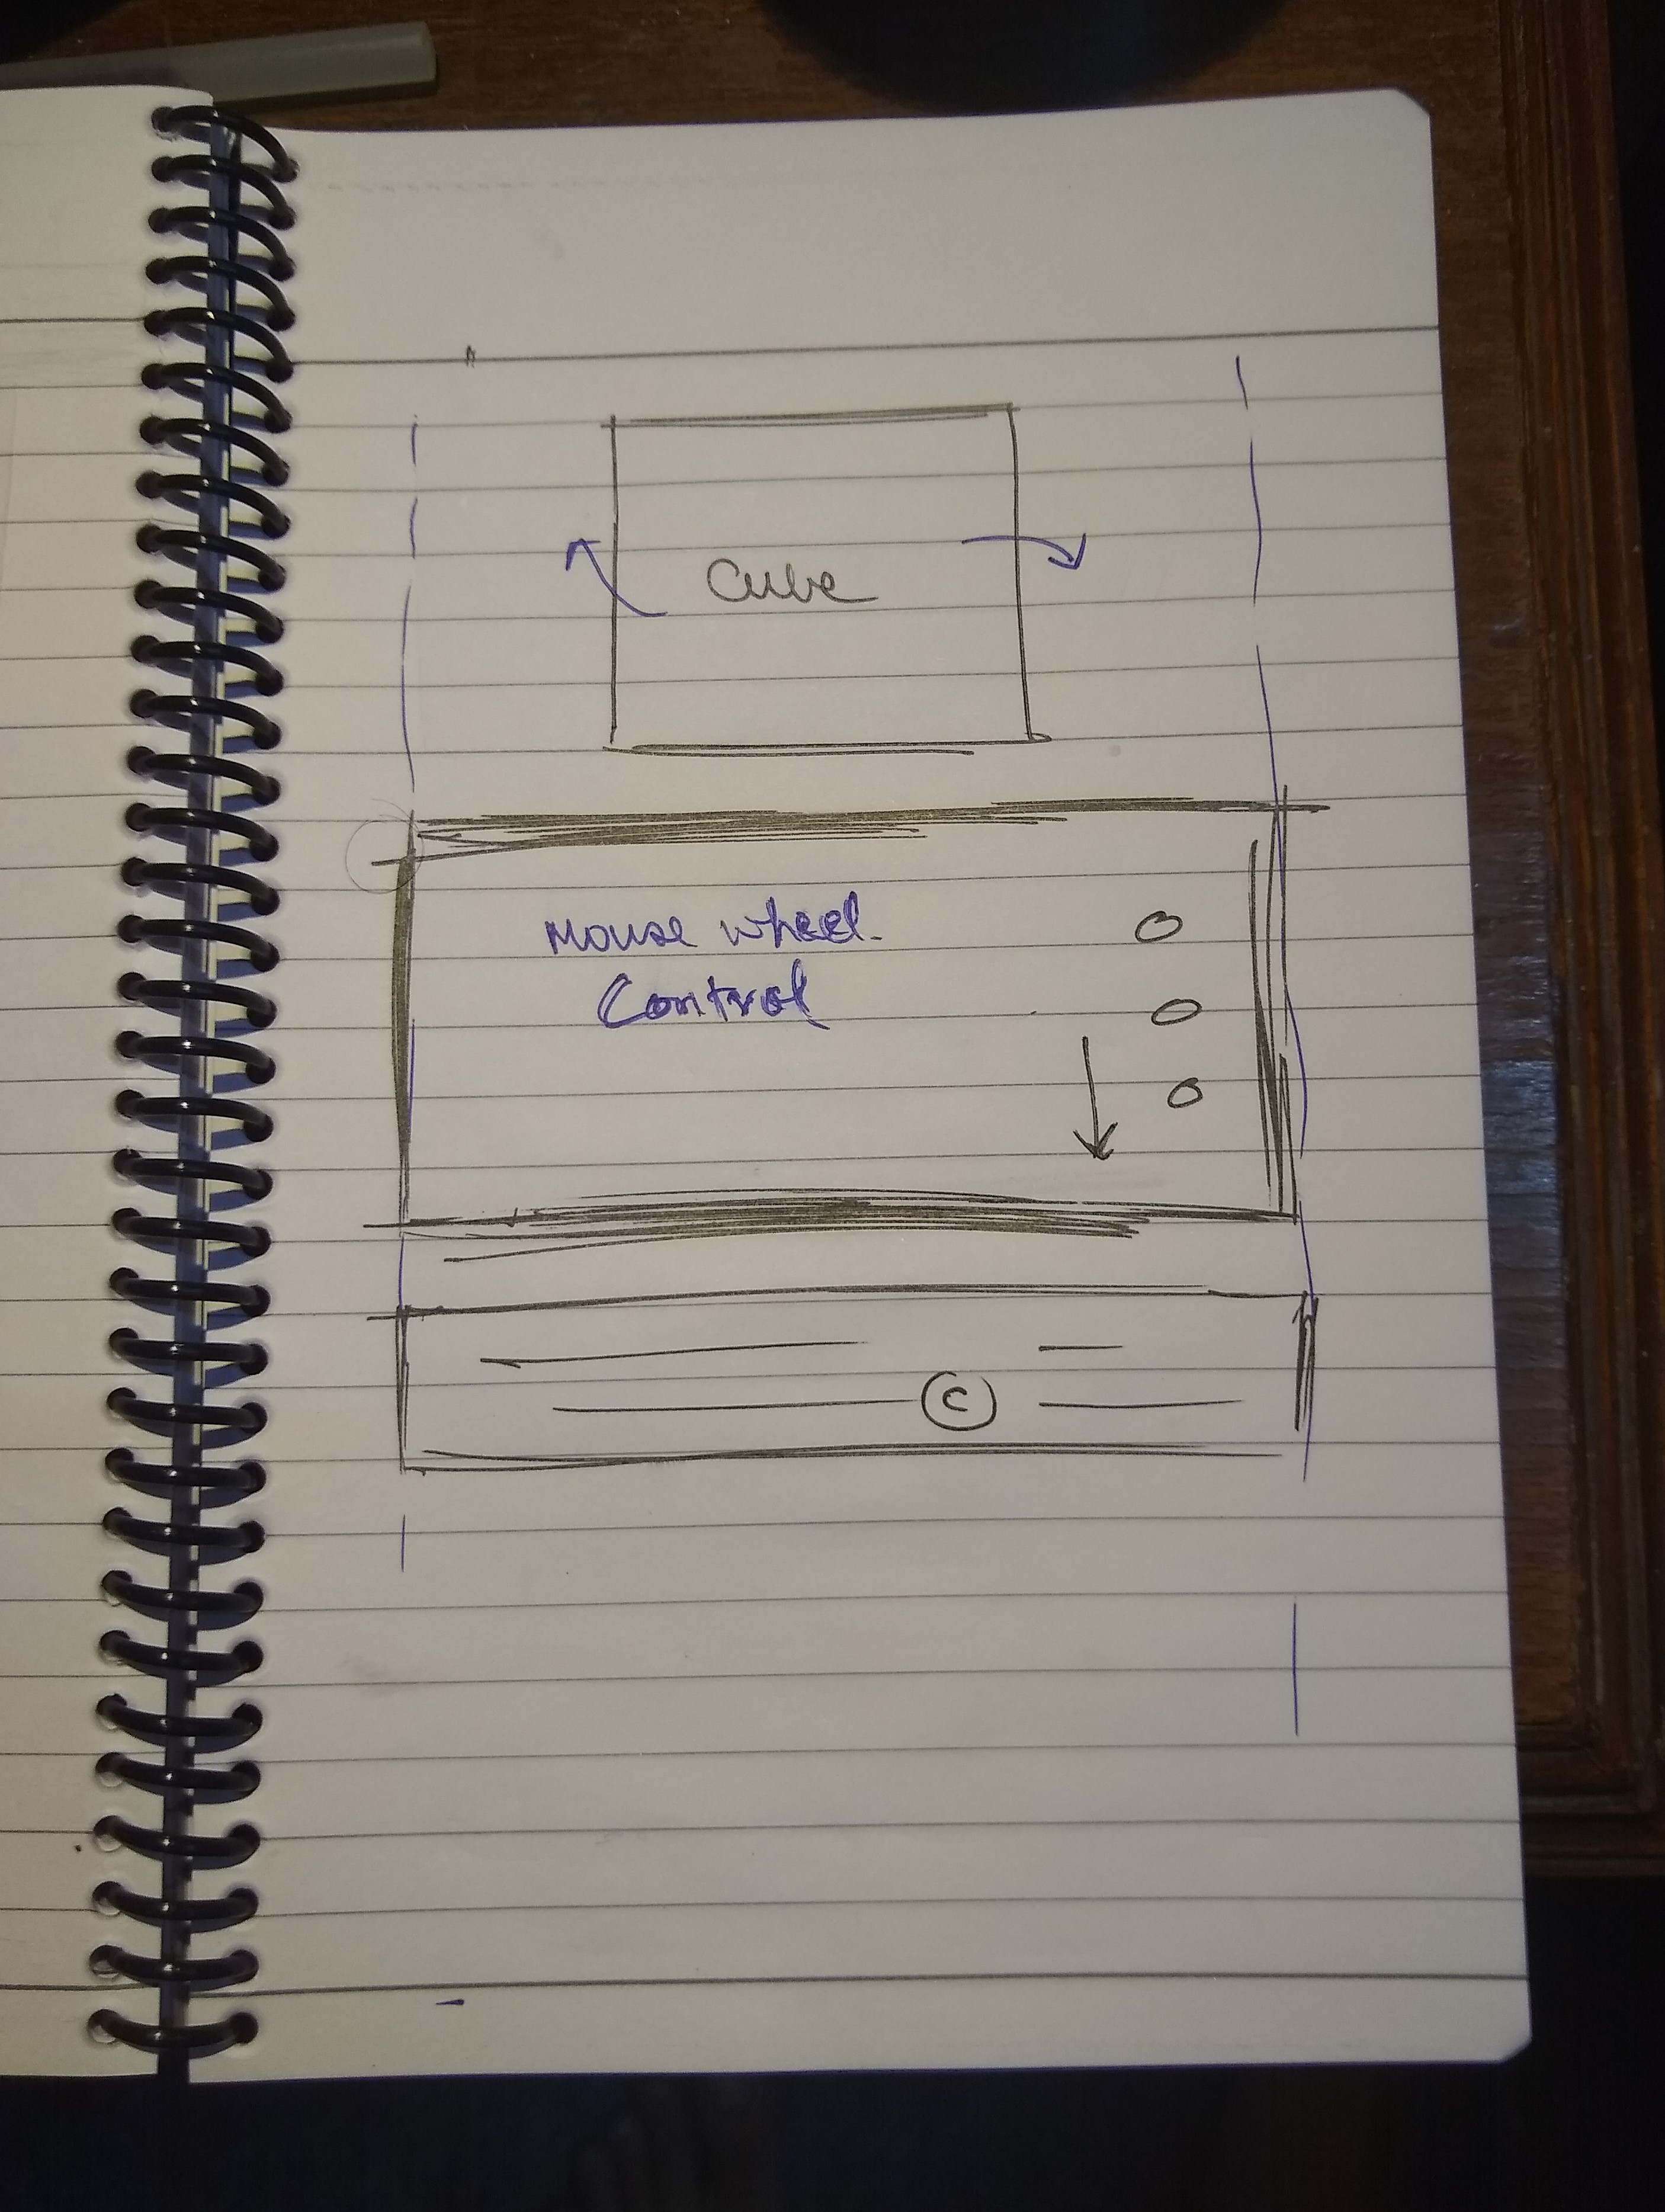 Cube
Mouse wheel
Control
©